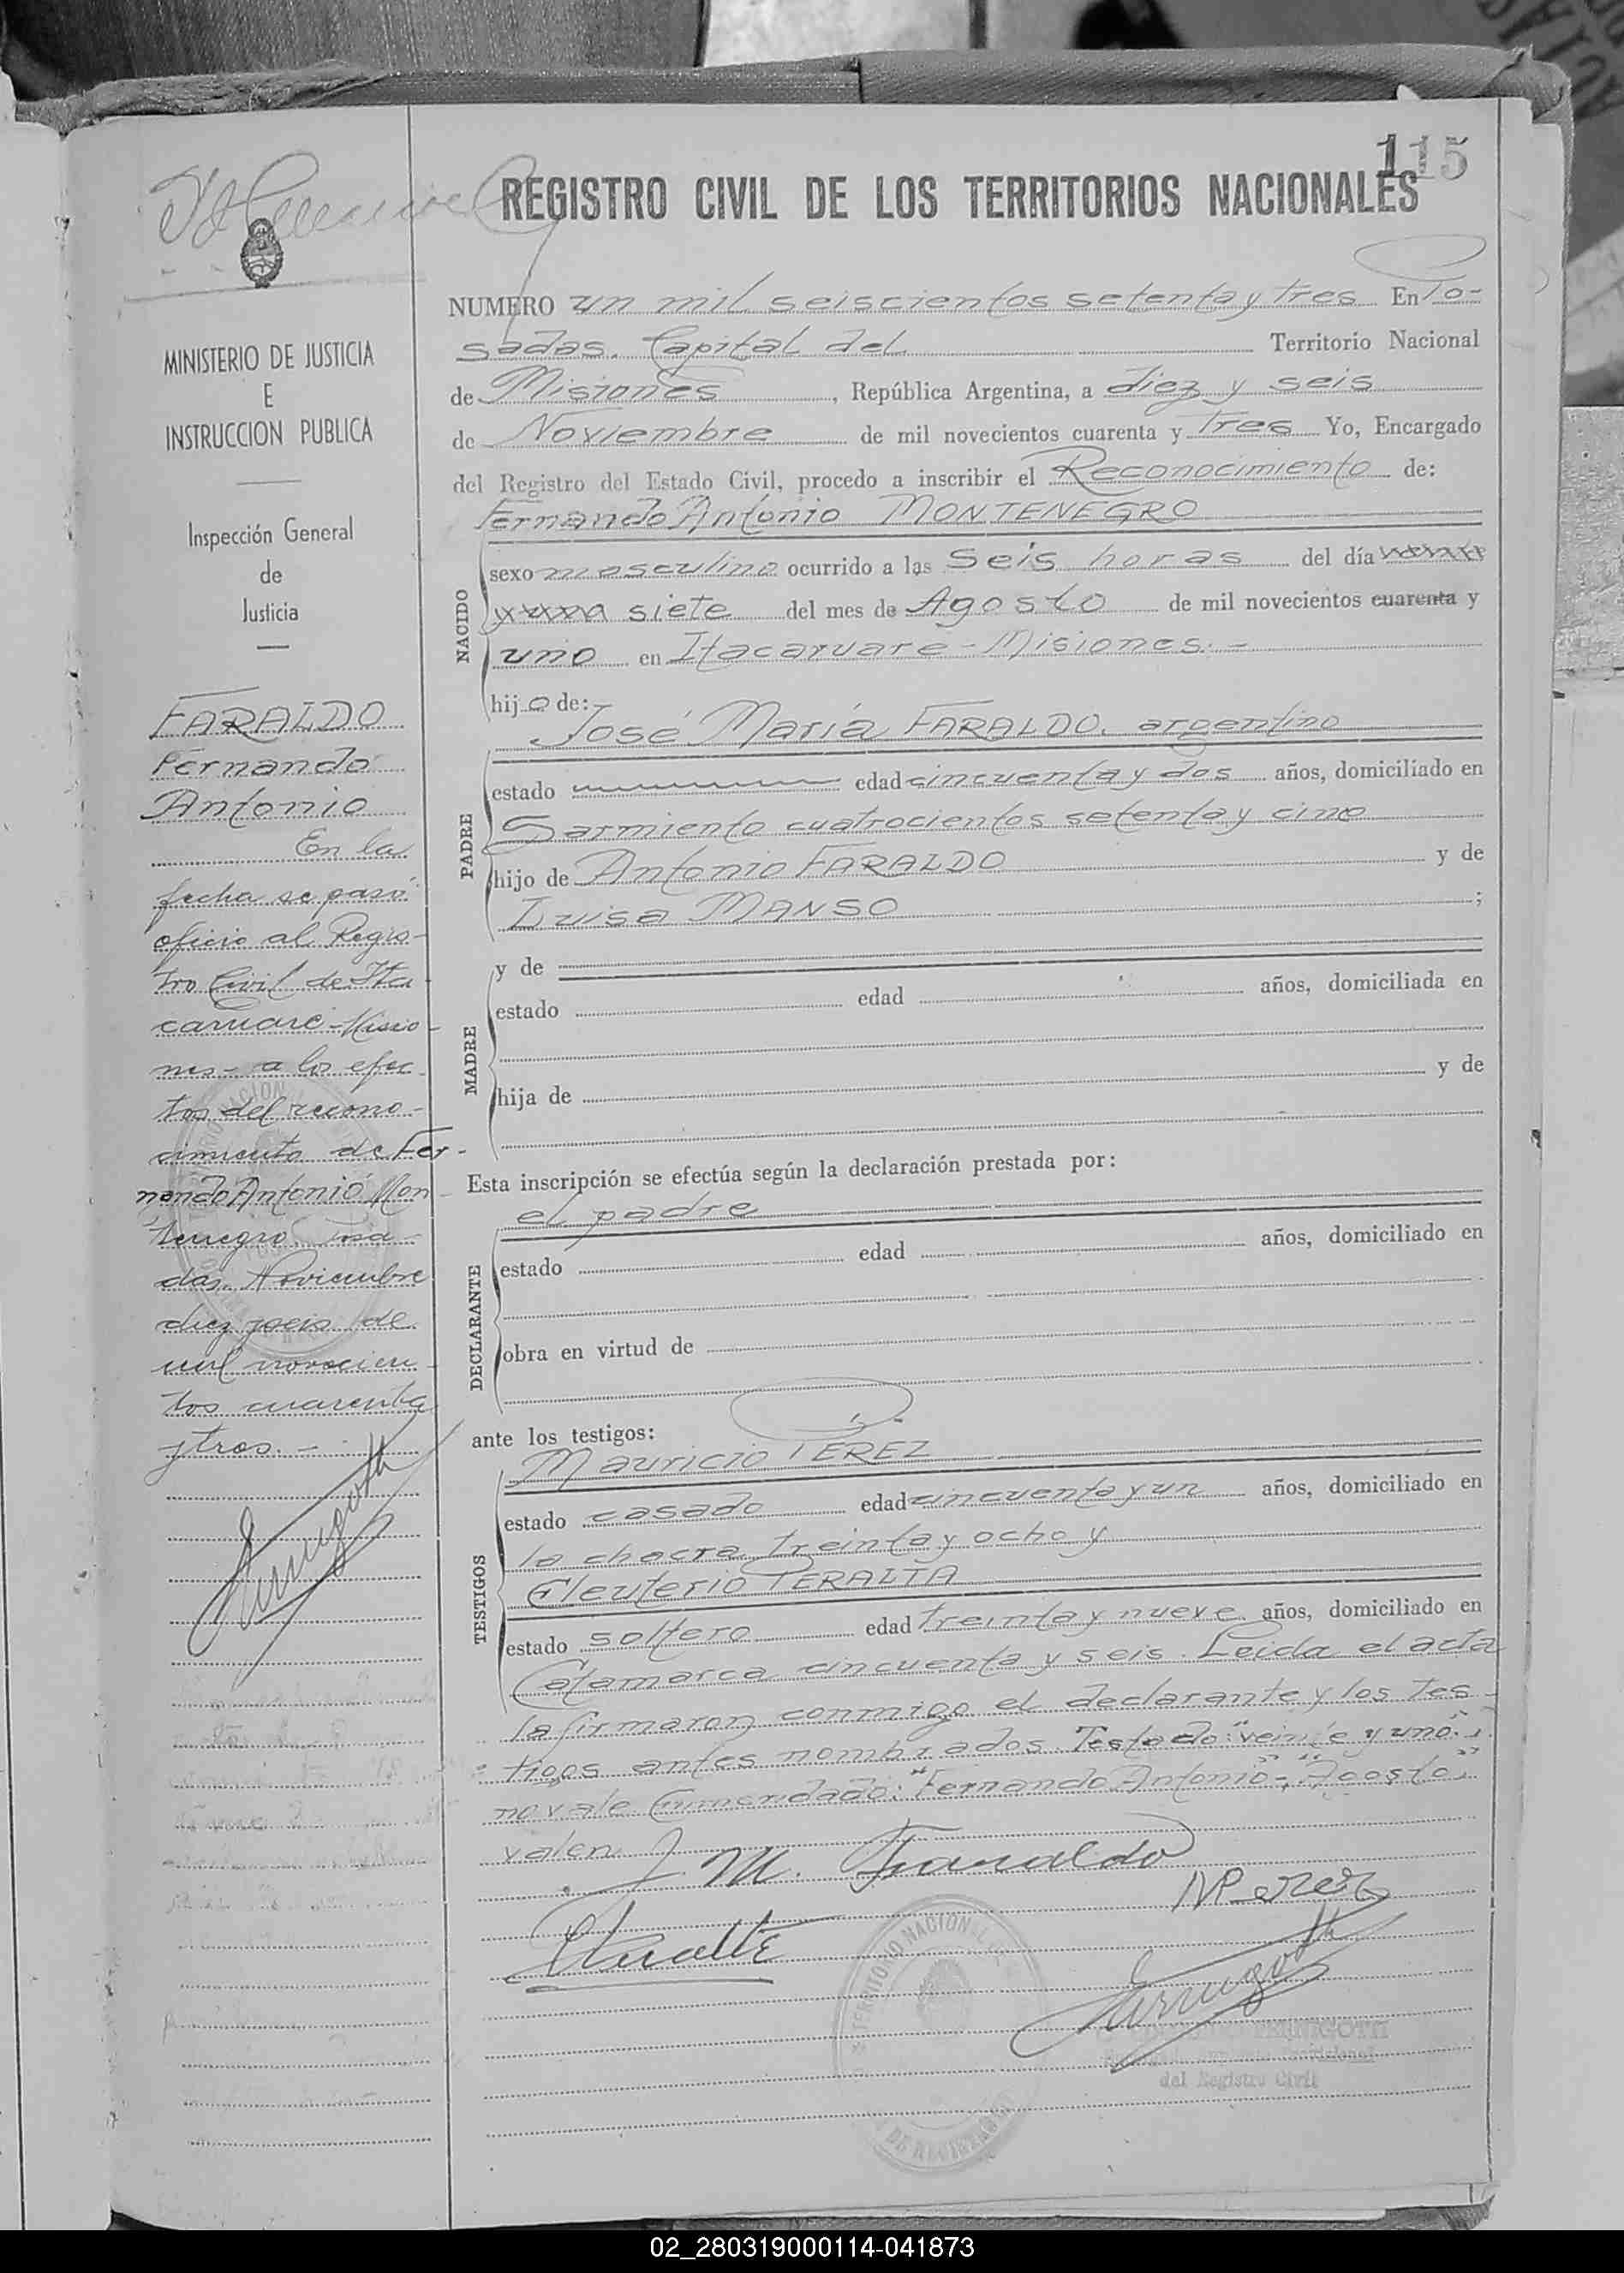 115
REGISTRO CIVIL DE LOS TERRITORIOS NACIONALES
MINISTERIO DE JUSTICIA
E
INSTRUCCION PUBLICA
Inspección General
de
Justicia
FARALDO
Fernando
Antonio
En la
fecha se pasó
oficio al Regis-
tro Civil de Ita-
caruaré-Misio-
nes- a los efec-
tos del recono-
cimiento de Fer-
nando Antonio Mon-
tenegro. Posa-
das, Noviembre
diez y seis de
mil novecien-
tos cuarenta
y tres.-
NUMERO un mil seiscientos setenta y tres En Po-
sadas. Capital del Territorio Nacional
de Misiones, República Argentina, a diez y seis
de Noviembre de mil novecientos cuarenta y tres Yo, Encargado
del Registro del Estado Civil, procedo a inscribir el Reconocimiento de:
Fernando Antonio MONTENEGRO
NACIDO
sexo masculino ocurrido a las seis horas del día
siete del mes de Agosto de mil novecientos cuarenta y
uno en Itacaruaré-Misiones.-
hijo de:
José María FARALDO. argentino
PADRE
estado edad cincuenta y dos años, domiciliado en
Sarmiento cuatrocientos setenta y cinco
hijo de Antonio FARALDO y de
Luisa MANSO ;
MADRE
y de
estado edad años, domiciliada en
hija de y de
Esta inscripción se efectúa según la declaración prestada por:
el padre
DECLARANTE
estado edad años, domiciliado en
obra en virtud de
ante los testigos:
Mauricio PÉREZ
TESTIGOS
estado casado edad cincuenta y un años, domiciliado en
la chacra treinta y ocho y
Eleuterio PERALTA
estado soltero edad treinta y nueve años, domiciliado en
Catamarca cincuenta y seis. Leida el acta
la firmaron conmigo el declarante y los tes-
tigos antes nombrados. Testado: "veinte y uno".
no vale Enmendado: "Fernando Antonio"-, "Agosto".
valen
J. M. Faraldo
M Perez
TERRITORIO NACIONAL
del Registro Civil
02_280319000114-041873